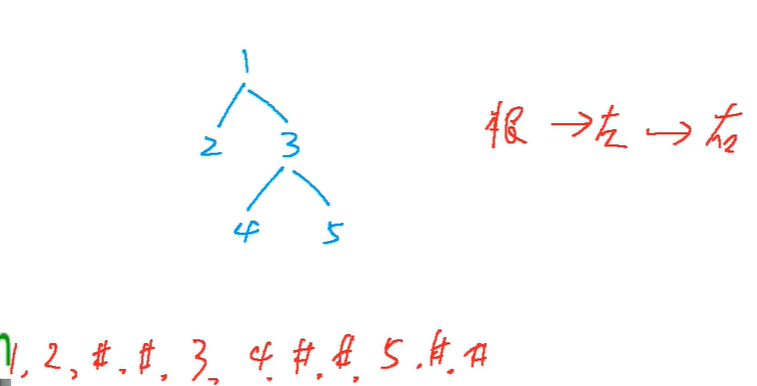 1
2 3
4 5
根 → 左 → 右
1, 2, #. #. 3, 4. #. #. 5. #. #